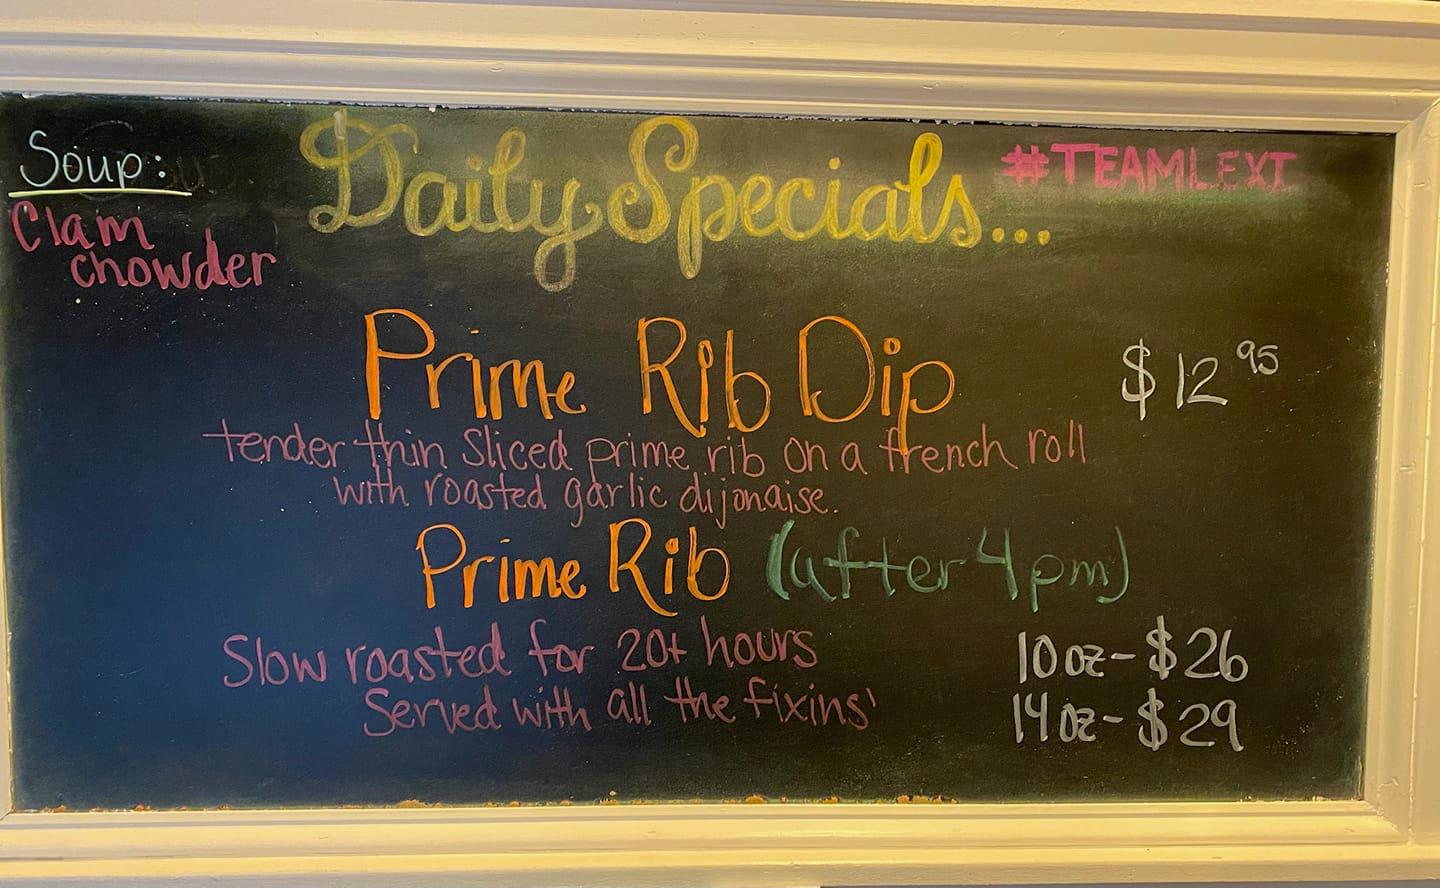 Soup:
Clam
chowder
Daily Specials...
#TEAMLEXI
Prime Rib Dip
$12.95
tender thin sliced prime rib on a french roll
with roasted garlic dijonaise.
Prime Rib (after 4pm)
Slow roasted for 20+ hours
Served with all the fixins'
10oz-$26
14oz-$29